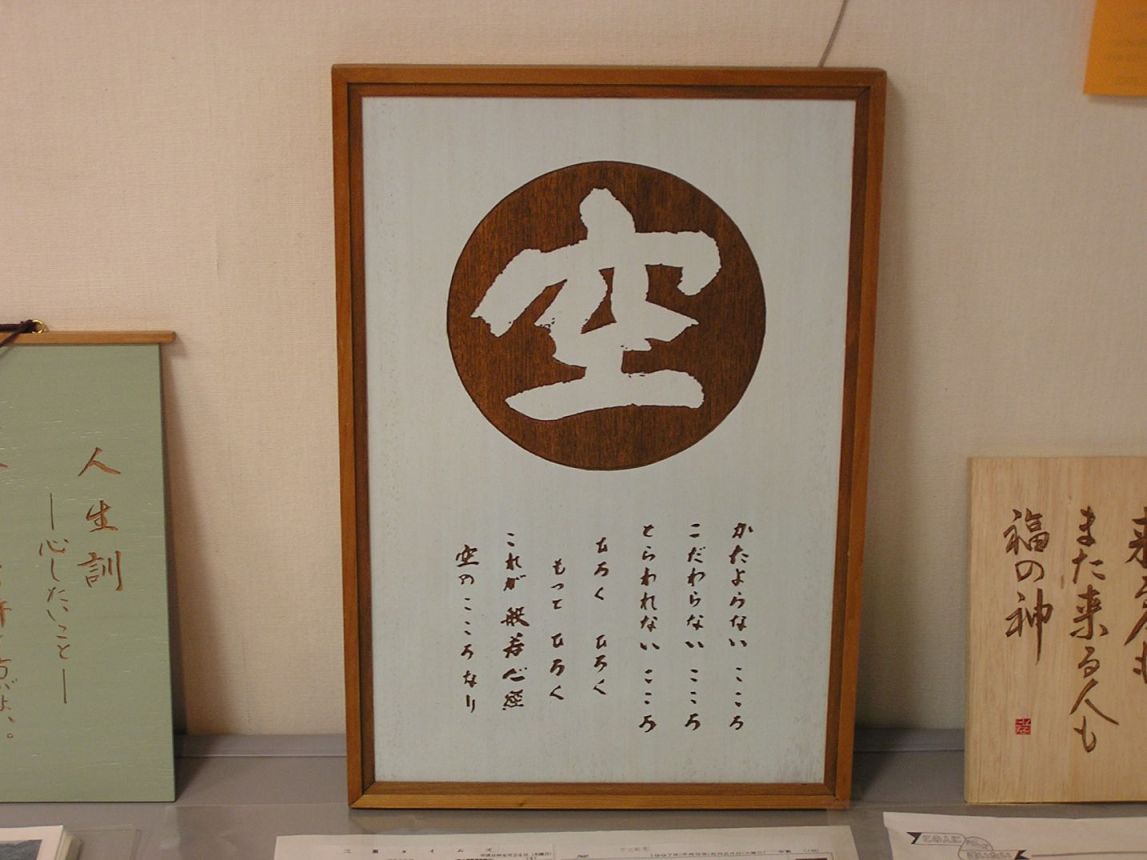 空
かたよらない こころ
こだわらない こころ
とらわれない こころ
ひろく ひろく
もって ひろく
これが 般若心経
空のこころなり
人生訓
―心したいこと―
来る人も
また来る人も
福の神